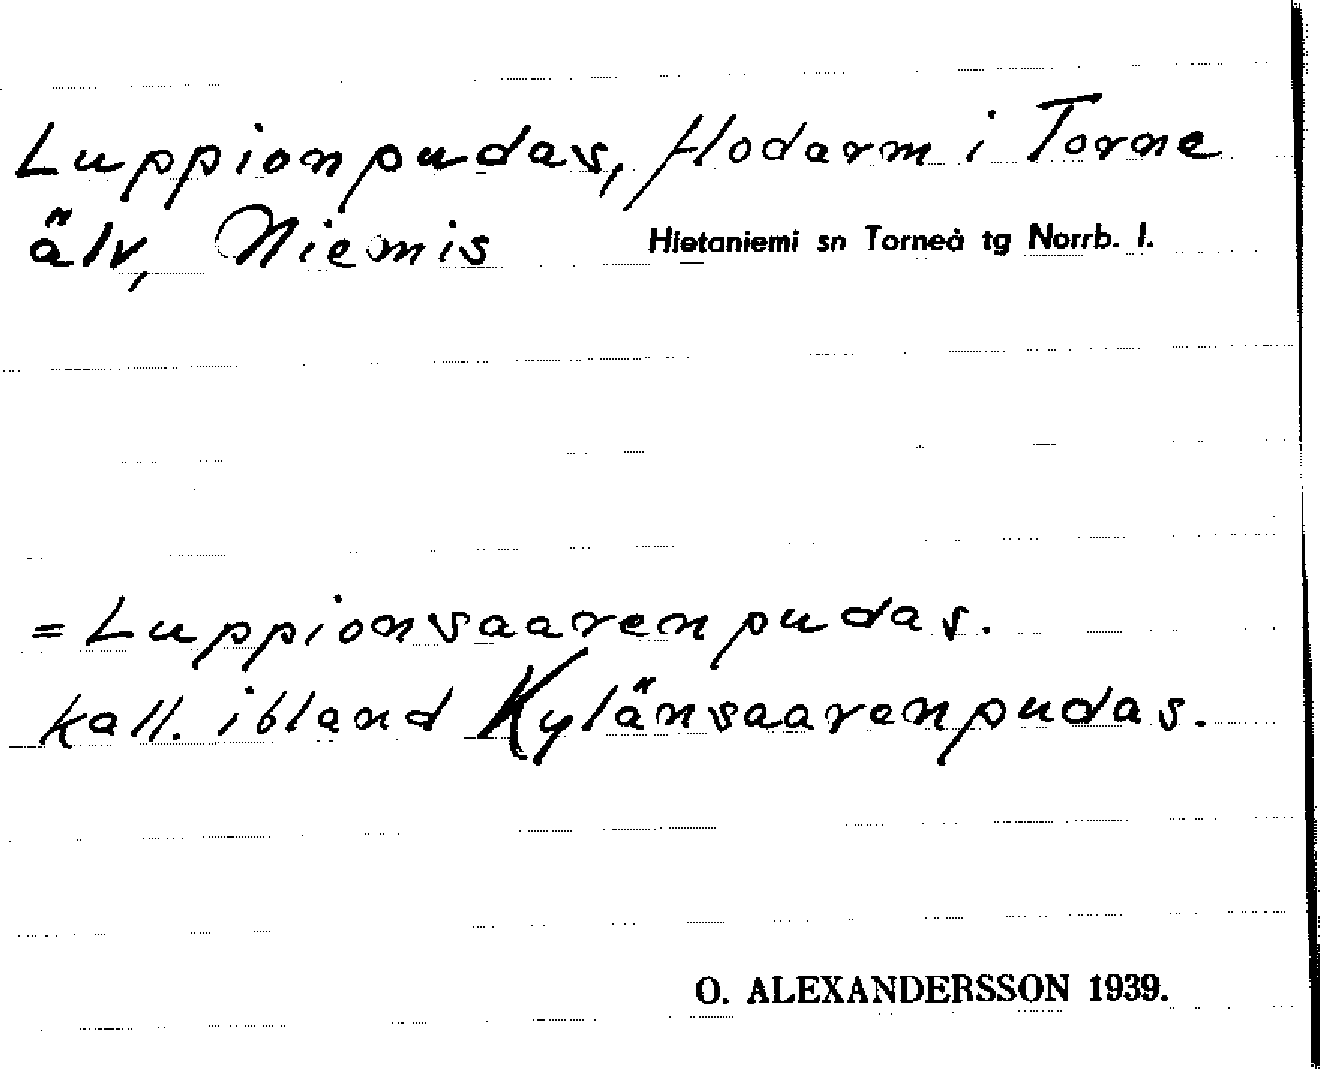 Luppionpudas, flodarm i Torne
älv, Niemis Hietaniemi sn Torneå tg Norrb. l.
= Luppionsaarenpudas.
kall. ibland Kylänsaarenpudas.
O. ALEXANDERSSON 1939.